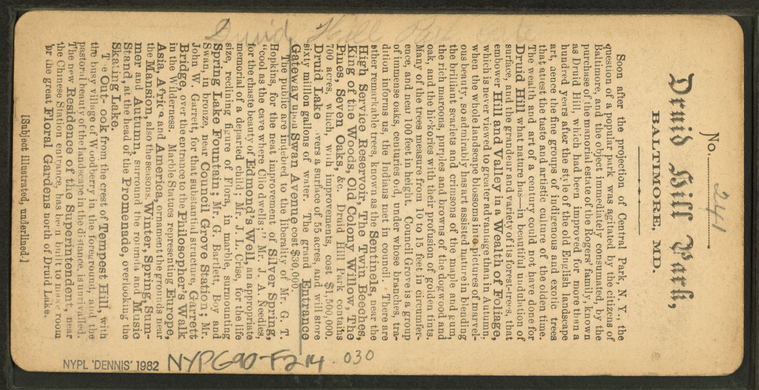 Druid Hill
No. 241
Druid Hill Park,
BALTIMORE, MD.
Soon after the projection of Central Park, N. Y., the
question of a popular park was agitated by the citizens of
Baltimore, and the object immediately consumated, by the
purchase of the manorial estate of the Rogers' family, known
as Druid Hill, which had been improved for more than a
hundred years after the style of the old English landscape
art, hence the fine groups of indigenous and exotic trees
that attest the taste and artistic culture of the olden time.
The wealth and art of a century could not have done for
Druid Hill what nature has, in beautiful undulation of
surface, and the grandeur and variety of its forest-trees, that
embower Hill and Valley in a Wealth of Foliage,
which is never viewed to greater advantage than in Autumn,
when the whole landscape blossoms into pictures of marvel-
ous beauty, so admirably has art assisted nature in blending
the brilliant scarlets and crimsons of the maple and gum
the rich maroons, purples and browns of the dogwood and
oak, and the hickories with their profusion of golden tints.
Many of the trees measure from to feet in circumfer-
ence, and near feet in height. Council Grove is a group
of immense oaks, centuries old, under whose branches, tra-
dition informs us, the Indians met in council. There are
other remarkable trees, known as the Sentinels, near the
High Service Reservoir, The Twin Beeches,
King of the Woods, Old Colony Willow, The
Pines, Seven Oaks, &c. Druid Hill Park contains
700 acres, which, with improvements, cost $1,500,000.
Druid Lake covers a surface of 55 acres, and will store
sixty million gallons of water. The grand Entrance
Gateway and Swan Avenue cost $300,000.
The public are indebted to the liberality of Mr. G. T.
Hopkins, for the neat improvement of Silver Spring,
"cool as the cave where Clio dwells;" Mr. J. A. Needles,
for the chaste beauty of Edmond's Well, an appropriate
memorial of a deceased friend; Mr. W. Crisp, for the life
size, reclining figure of Flora, in marble, surmounting
Spring Lake Fountain; Mr. G. Bartlett, Boy and
Swan in bronze, near Council Grove Station; Mr.
John W. Garrett, for that substantial structure, Garrett
Bridge, near the entrance to the Philosopher's Walk
in the Wilderness. Marble Statues representing Europe,
Asia, Africa and America, ornament the grounds near
the Mansion, also the seasons, Winter, Spring, Sum-
mer and Autumn, surround the rotunda and Music
Stand, at the head of the Promenade, overlooking the
Skating Lake.
The Out-look from the crest of Tempest Hill, with
the busy village of Woodberry in the foreground, and the
pastoral beauty of the landscape in the distance, is unrivalled.
The new Residence of the Superintendent, near
the Chinese Station entrance, has been built to make room
for the great Floral Gardens north of Druid Lake.
[Subject illustrated, underlined.]
NYPL 'DENNIS' 1982
NYPG90-F214 .030